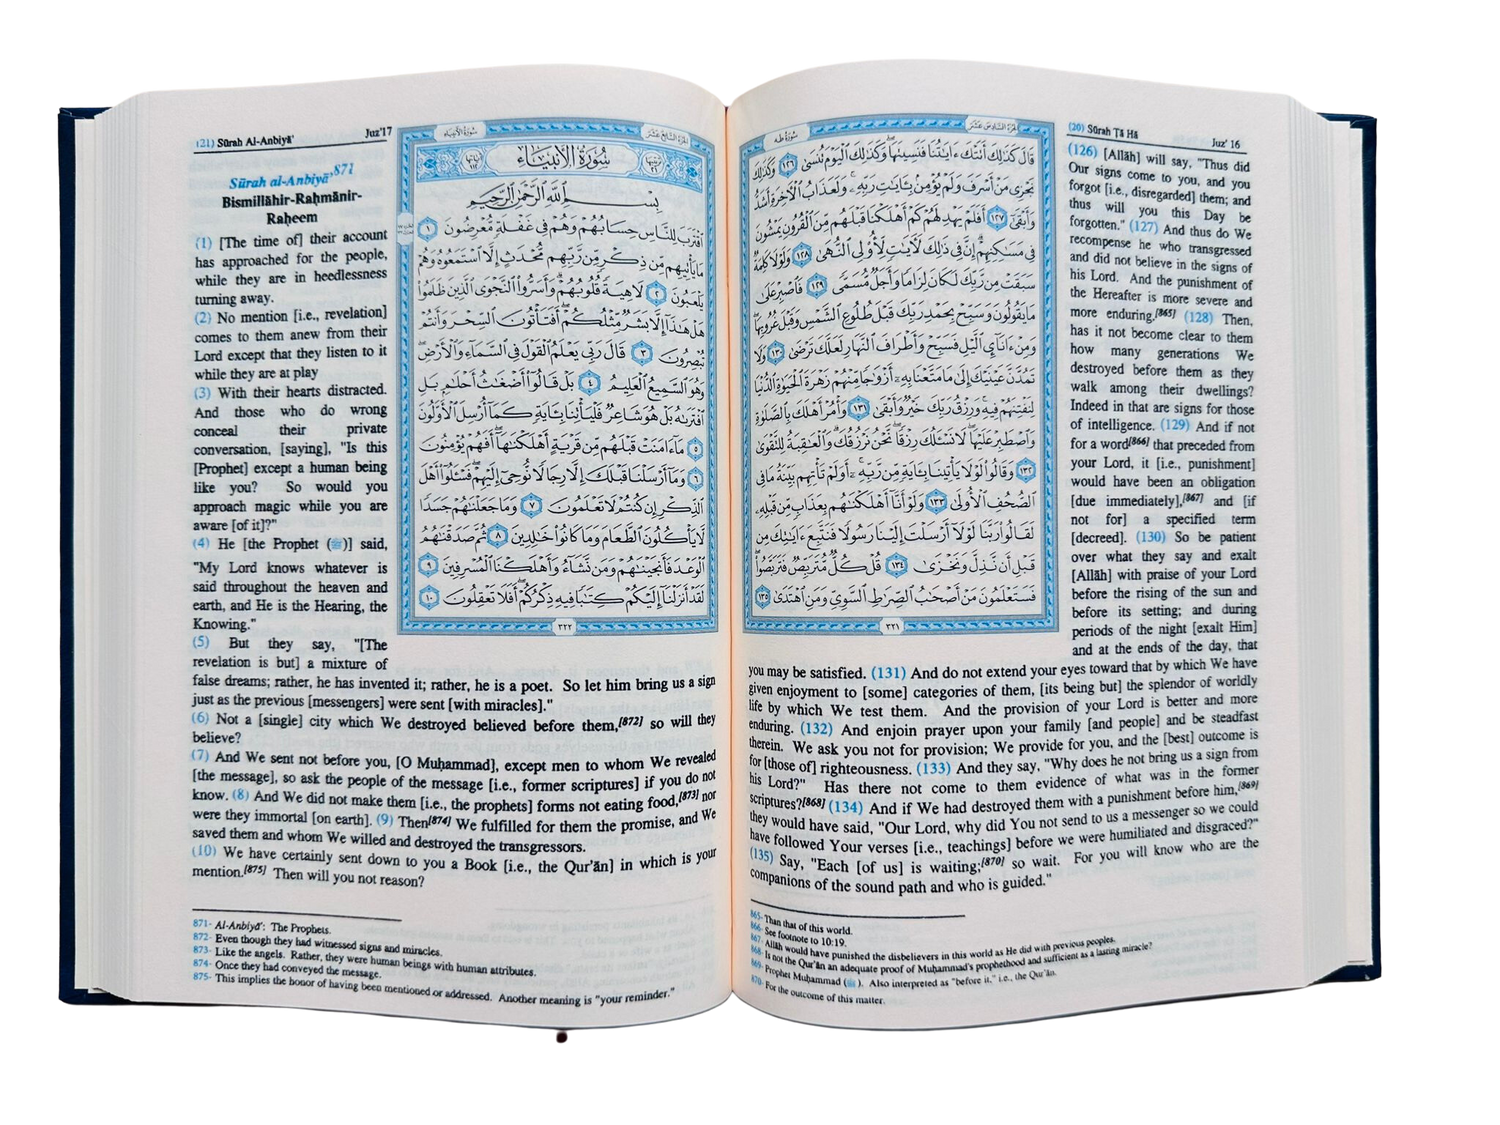 (20) Sūrah Ṭā Hā
Juz' 16
(126) [Allāh] will say, "Thus did
Our signs come to you, and you
forgot [i.e., disregarded] them; and
thus will you this Day be
forgotten." (127) And thus do We
recompense he who transgressed
and did not believe in the signs of
his Lord. And the punishment of
the Hereafter is more severe and
more enduring.[865] (128) Then,
has it not become clear to them
how many generations We
destroyed before them as they
walk among their dwellings?
Indeed in that are signs for those
of intelligence. (129) And if not
for a word[866] that preceded from
your Lord, it [i.e., punishment]
would have been an obligation
[due immediately],[867] and [if
not for] a specified term
[decreed]. (130) So be patient
over what they say and exalt
[Allāh] with praise of your Lord
before the rising of the sun and
before its setting; and during
periods of the night [exalt Him]
and at the ends of the day, that
الجزء السادس عشر
سورة طه
قَالَ كَذَٰلِكَ أَتَتْكَ ءَايَٰتُنَا فَنَسِيتَهَا ۖ وَكَذَٰلِكَ ٱلْيَوْمَ تُنسَىٰ ١٢٦ وَكَذَٰلِكَ
نَجْزِى مَنْ أَسْرَفَ وَلَمْ يُؤْمِنۢ بِـَٔايَٰتِ رَبِّهِۦ ۚ وَلَعَذَابُ ٱلْءَاخِرَةِ أَشَدُّ
وَأَبْقَىٰٓ ١٢٧ أَفَلَمْ يَهْدِ لَهُمْ كَمْ أَهْلَكْنَا قَبْلَهُم مِّنَ ٱلْقُرُونِ يَمْشُونَ
فِى مَسَٰكِنِهِمْ ۗ إِنَّ فِى ذَٰلِكَ لَءَايَٰتٍ لِّأُو۟لِى ٱلنُّهَىٰ ١٢٨ وَلَوْلَا كَلِمَةٌ
سَبَقَتْ مِن رَّبِّكَ لَكَانَ لِزَامًا وَأَجَلٌ مُّسَمًّى ١٢٩ فَٱصْبِرْ عَلَىٰ
مَا يَقُولُونَ وَسَبِّحْ بِحَمْدِ رَبِّكَ قَبْلَ طُلُوعِ ٱلشَّمْسِ وَقَبْلَ غُرُوبِهَا ۖ
وَمِنْ ءَانَآئِ ٱلَّيْلِ فَسَبِّحْ وَأَطْرَافَ ٱلنَّهَارِ لَعَلَّكَ تَرْضَىٰ ١٣٠ وَلَا
تَمُدَّنَّ عَيْنَيْكَ إِلَىٰ مَا مَتَّعْنَا بِهِۦٓ أَزْوَٰجًا مِّنْهُمْ زَهْرَةَ ٱلْحَيَوٰةِ ٱلدُّنْيَا
لِنَفْتِنَهُمْ فِيهِ ۚ وَرِزْقُ رَبِّكَ خَيْرٌ وَأَبْقَىٰ ١٣١ وَأْمُرْ أَهْلَكَ بِٱلصَّلَوٰةِ
وَٱصْطَبِرْ عَلَيْهَا ۖ لَا نَسْـَٔلُكَ رِزْقًا ۖ نَّحْنُ نَرْزُقُكَ ۗ وَٱلْعَٰقِبَةُ لِلتَّقْوَىٰ
١٣٢ وَقَالُوا۟ لَوْلَا يَأْتِينَا بِـَٔايَةٍ مِّن رَّبِّهِۦٓ ۚ أَوَلَمْ تَأْتِهِم بَيِّنَةُ مَا فِى
ٱلصُّحُفِ ٱلْأُولَىٰ ١٣٣ وَلَوْ أَنَّآ أَهْلَكْنَٰهُم بِعَذَابٍ مِّن قَبْلِهِۦ
لَقَالُوا۟ رَبَّنَا لَوْلَآ أَرْسَلْتَ إِلَيْنَا رَسُولًا فَنَتَّبِعَ ءَايَٰتِكَ مِن
قَبْلِ أَن نَّذِلَّ وَنَخْزَىٰ ١٣٤ قُلْ كُلٌّ مُّتَرَبِّصٌ فَتَرَبَّصُوا۟ ۖ
فَسَتَعْلَمُونَ مَنْ أَصْحَٰبُ ٱلصِّرَٰطِ ٱلسَّوِىِّ وَمَنِ ٱهْتَدَىٰ ١٣٥
٣٢١
you may be satisfied. (131) And do not extend your eyes toward that by which We have
given enjoyment to [some] categories of them, [its being but] the splendor of worldly
life by which We test them. And the provision of your Lord is better and more
enduring. (132) And enjoin prayer upon your family [and people] and be steadfast
therein. We ask you not for provision; We provide for you, and the [best] outcome is
for [those of] righteousness. (133) And they say, "Why does he not bring us a sign from
his Lord?" Has there not come to them evidence of what was in the former
scriptures?[868] (134) And if We had destroyed them with a punishment before him,[869]
they would have said, "Our Lord, why did You not send to us a messenger so we could
have followed Your verses [i.e., teachings] before we were humiliated and disgraced?"
(135) Say, "Each [of us] is waiting;[870] so wait. For you will know who are the
companions of the sound path and who is guided."
865- Than that of this world.
866- See footnote to 10:19.
867- Allāh would have punished the disbelievers in this world as He did with previous peoples.
868- Is not the Qur'ān an adequate proof of Muḥammad's prophethood and sufficient as a lasting miracle?
869- Prophet Muḥammad (ﷺ). Also interpreted as "before it," i.e., the Qur'ān.
870- For the outcome of this matter.
(21) Sūrah Al-Anbiyā'
Juz'17
Sūrah al-Anbiyā'871
Bismillāhir-Raḥmānir-
Raḥeem
(1) [The time of] their account
has approached for the people,
while they are in heedlessness
turning away.
(2) No mention [i.e., revelation]
comes to them anew from their
Lord except that they listen to it
while they are at play
(3) With their hearts distracted.
And those who do wrong
conceal their private
conversation, [saying], "Is this
[Prophet] except a human being
like you? So would you
approach magic while you are
aware [of it]?"
(4) He [the Prophet (ﷺ)] said,
"My Lord knows whatever is
said throughout the heaven and
earth, and He is the Hearing, the
Knowing."
(5) But they say, "[The
revelation is but] a mixture of
الجزء السابع عشر
سورة الأنبياء
ترتيبها ٢١
سُورَةُ الأَنبِيَاءِ
آياتها ١١٢
بِسْمِ ٱللَّهِ ٱلرَّحْمَٰنِ ٱلرَّحِيمِ
ٱقْتَرَبَ لِلنَّاسِ حِسَابُهُمْ وَهُمْ فِى غَفْلَةٍ مُّعْرِضُونَ ١
مَا يَأْتِيهِم مِّن ذِكْرٍ مِّن رَّبِّهِم مُّحْدَثٍ إِلَّا ٱسْتَمَعُوهُ وَهُمْ
يَلْعَبُونَ ٢ لَاهِيَةً قُلُوبُهُمْ ۗ وَأَسَرُّوا۟ ٱلنَّجْوَى ٱلَّذِينَ ظَلَمُوا۟
هَلْ هَٰذَآ إِلَّا بَشَرٌ مِّثْلُكُمْ ۖ أَفَتَأْتُونَ ٱلسِّحْرَ وَأَنتُمْ
تُبْصِرُونَ ٣ قَالَ رَبِّى يَعْلَمُ ٱلْقَوْلَ فِى ٱلسَّمَآءِ وَٱلْأَرْضِ ۖ
وَهُوَ ٱلسَّمِيعُ ٱلْعَلِيمُ ٤ بَلْ قَالُوٓا۟ أَضْغَٰثُ أَحْلَٰمٍۭ بَلِ
ٱفْتَرَىٰهُ بَلْ هُوَ شَاعِرٌ فَلْيَأْتِنَا بِـَٔايَةٍ كَمَآ أُرْسِلَ ٱلْأَوَّلُونَ
٥ مَآ ءَامَنَتْ قَبْلَهُم مِّن قَرْيَةٍ أَهْلَكْنَٰهَآ ۖ أَفَهُمْ يُؤْمِنُونَ
٦ وَمَآ أَرْسَلْنَا قَبْلَكَ إِلَّا رِجَالًا نُّوحِىٓ إِلَيْهِمْ ۖ فَسْـَٔلُوٓا۟ أَهْلَ
ٱلذِّكْرِ إِن كُنتُمْ لَا تَعْلَمُونَ ٧ وَمَا جَعَلْنَٰهُمْ جَسَدًا
لَّا يَأْكُلُونَ ٱلطَّعَامَ وَمَا كَانُوا۟ خَٰلِدِينَ ٨ ثُمَّ صَدَقْنَٰهُمُ
ٱلْوَعْدَ فَأَنجَيْنَٰهُمْ وَمَن نَّشَآءُ وَأَهْلَكْنَا ٱلْمُسْرِفِينَ ٩
لَقَدْ أَنزَلْنَآ إِلَيْكُمْ كِتَٰبًا فِيهِ ذِكْرُكُمْ ۖ أَفَلَا تَعْقِلُونَ ١٠
٣٢٢
false dreams; rather, he has invented it; rather, he is a poet. So let him bring us a sign
just as the previous [messengers] were sent [with miracles]."
(6) Not a [single] city which We destroyed believed before them,[872] so will they
believe?
(7) And We sent not before you, [O Muḥammad], except men to whom We revealed
[the message], so ask the people of the message [i.e., former scriptures] if you do not
know. (8) And We did not make them [i.e., the prophets] forms not eating food,[873] nor
were they immortal [on earth]. (9) Then[874] We fulfilled for them the promise, and We
saved them and whom We willed and destroyed the transgressors.
(10) We have certainly sent down to you a Book [i.e., the Qur'ān] in which is your
mention.[875] Then will you not reason?
871- Al-Anbiyā': The Prophets.
872- Even though they had witnessed signs and miracles.
873- Like the angels. Rather, they were human beings with human attributes.
874- Once they had conveyed the message.
875- This implies the honor of having been mentioned or addressed. Another meaning is "your reminder."